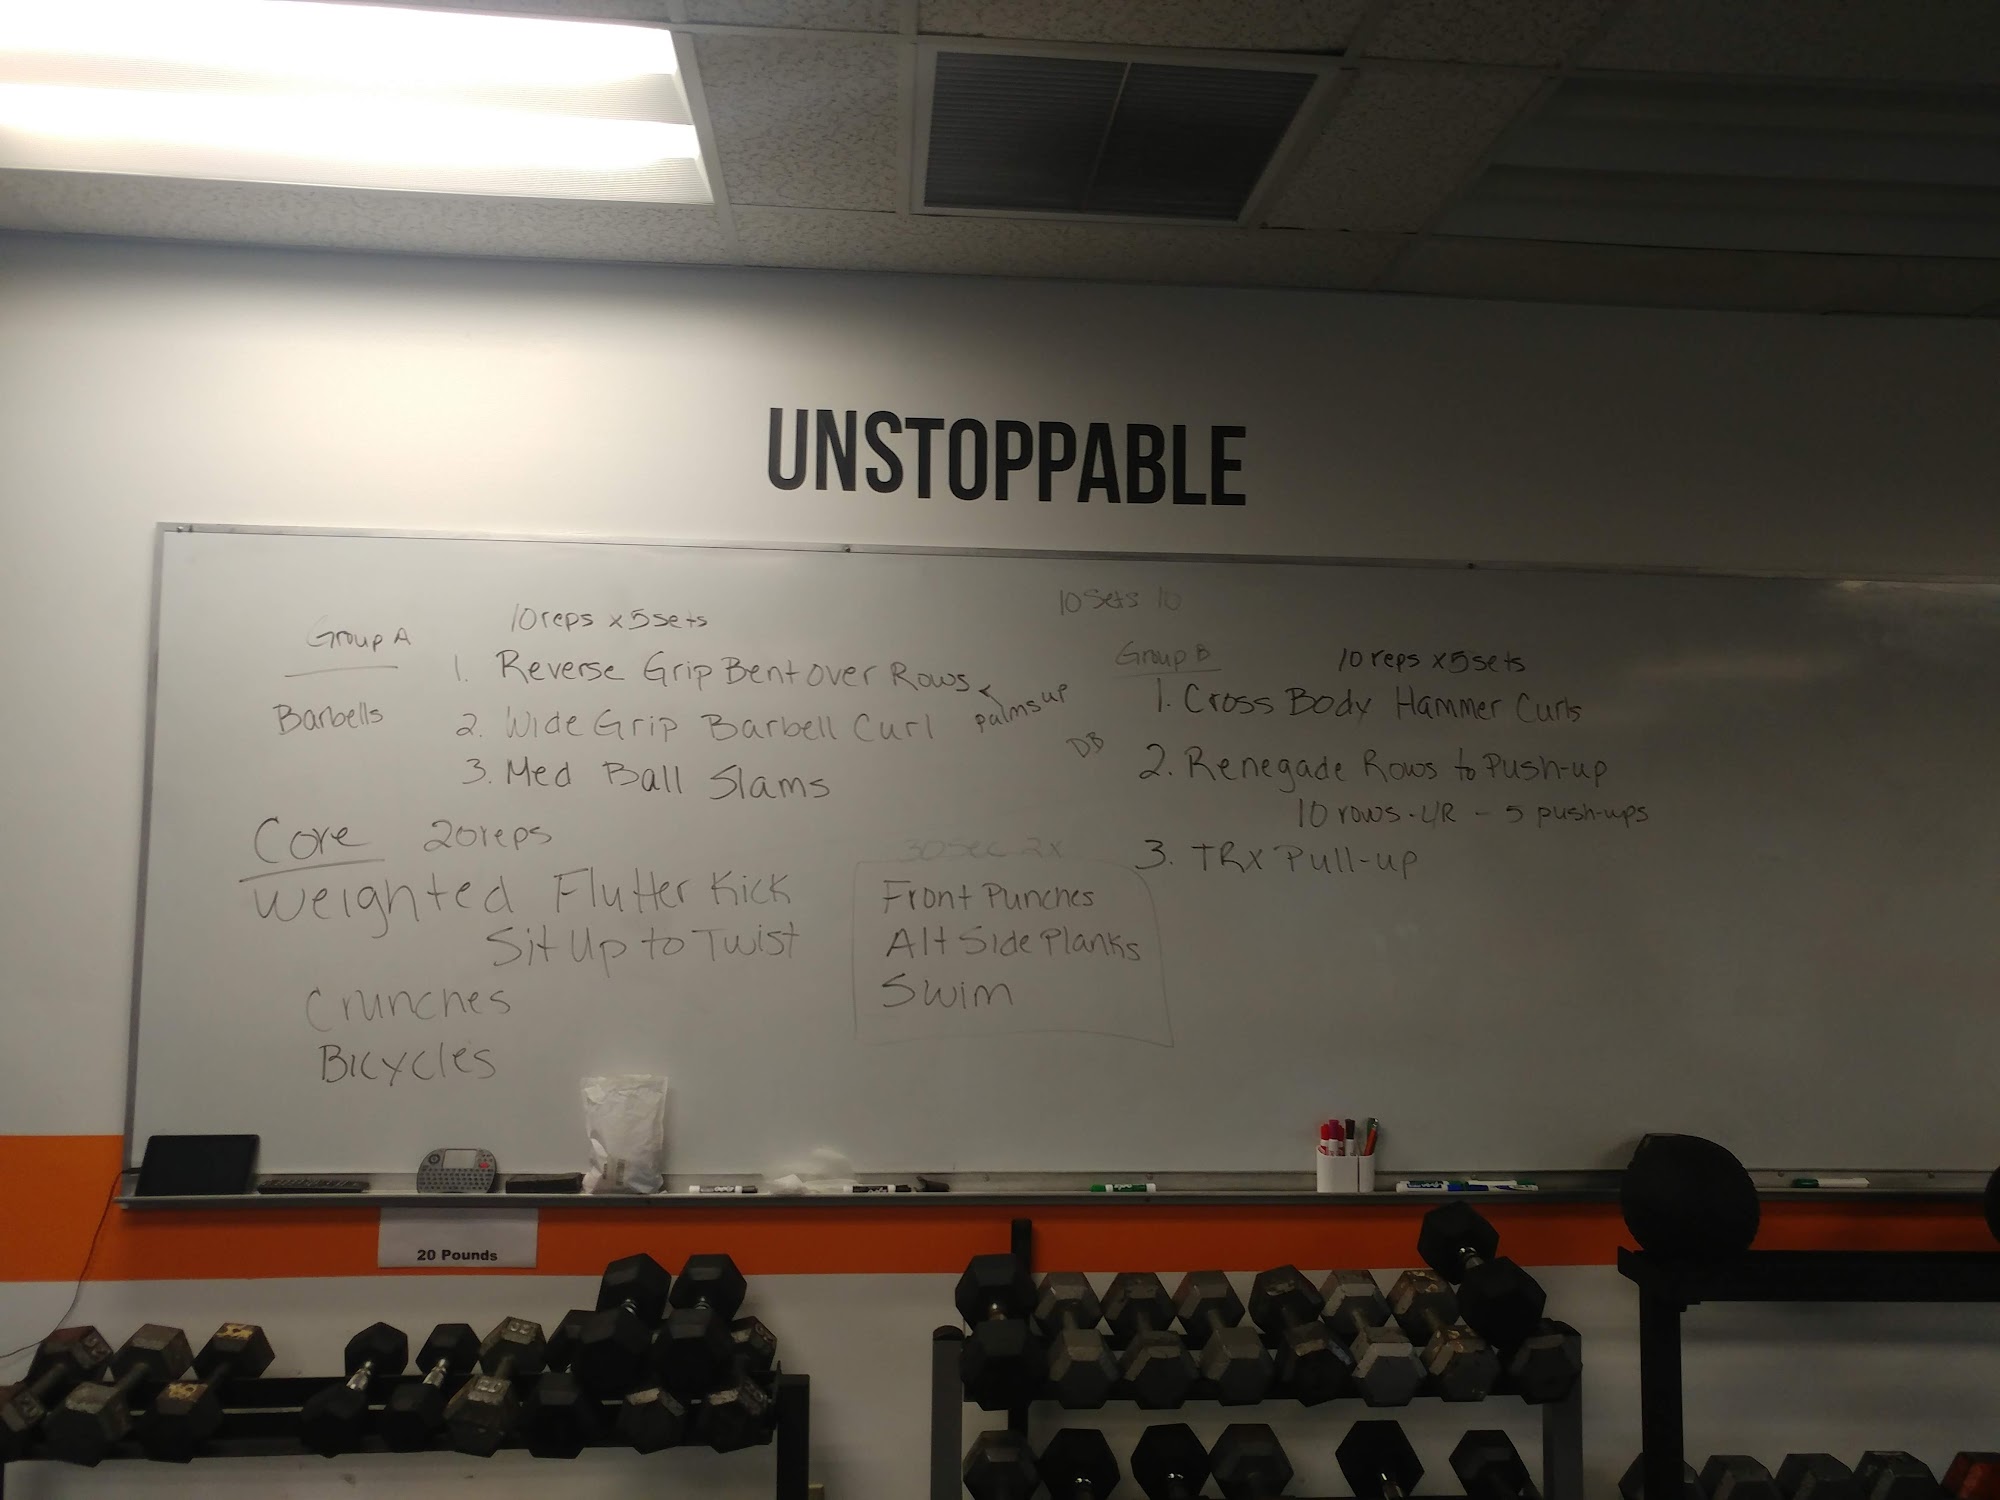 UNSTOPPABLE
10 Sets 10
Group A
10 reps x 5 sets
Barbells
1. Reverse Grip Bent Over Rows < palms up
2. Wide Grip Barbell Curl
3. Med Ball Slams
Group B
10 reps x 5 sets
DB
1. Cross Body Hammer Curls
2. Renegade Rows to Push-up
10 rows - L/R - 5 push-ups
3. TRX Pull-up
Core 20 reps
Weighted Flutter Kick
Sit Up to Twist
Crunches
Bicycles
30 sec 2x
Front Punches
Alt Side Planks
Swim
20 Pounds